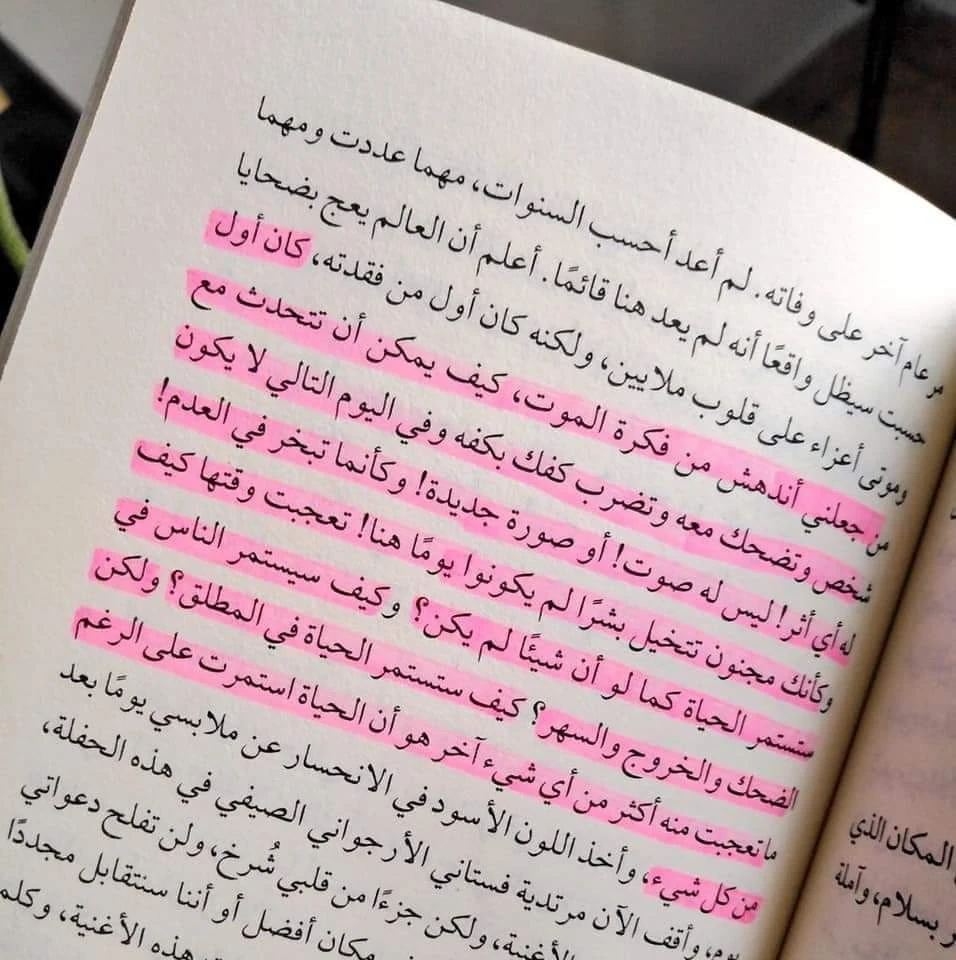 مر عام آخر على وفاته. لم أعد أحسب السنوات، مهما عددت ومهما
حسبت سيظل واقعًا أنه لم يعد هنا قائمًا. أعلم أن العالم يعج بضحايا
وموتى أعزاء على قلوب ملايين، ولكنه كان أول من فقدته، كان أول
من جعلني أندهش من فكرة الموت، كيف يمكن أن تتحدث مع
شخص وتضحك معه وتضرب كفك بكفه وفي اليوم التالي لا يكون
له أي أثر! ليس له صوت! أو صورة جديدة! وكأنما تبخر في العدم!
وكأنك مجنون تتخيل بشرًا لم يكونوا يومًا هنا! تعجبت وقتها كيف
ستستمر الحياة كما لو أن شيئًا لم يكن؟ وكيف سيستمر الناس في
الضحك والخروج والسهر؟ كيف ستستمر الحياة في المطلق؟ ولكن
ما تعجبت منه أكثر من أي شيء آخر هو أن الحياة استمرت على الرغم
من كل شيء، وأخذ اللون الأسود في الانحسار عن ملابسي يومًا بعد
يوم، وأقف الآن مرتدية فستاني الأرجواني الصيفي في هذه الحفلة،
الأغنية، ولكن جزءًا من قلبي شُرخ، ولن تفلح دعواتي
مكان أفضل أو أننا سنتقابل مجددًا
هذه الأغنية، وكلما
المكان الذي
بسلام، وآملة